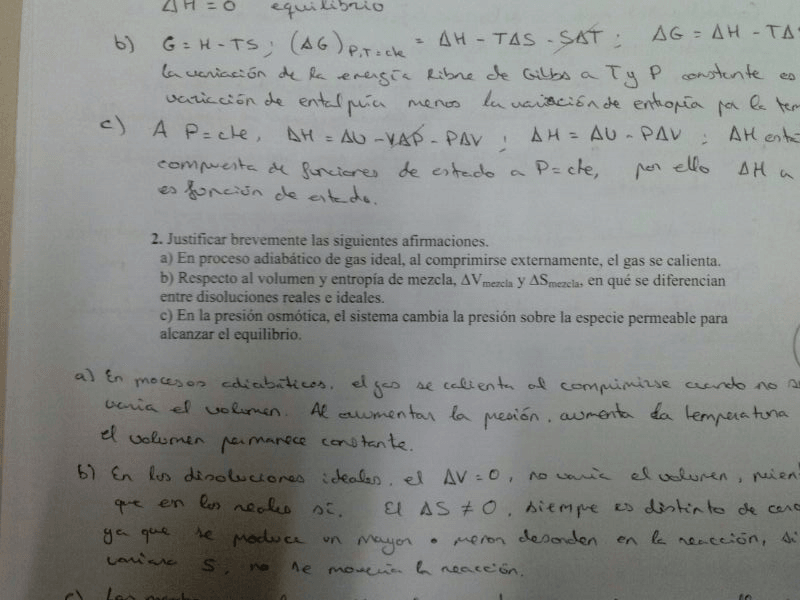 ΔH = 0 equilibrio
b) G = H - TS ; (ΔG)P,T=cte = ΔH - TΔS - SΔT ; ΔG = ΔH - TΔS
la variación de la energía libre de Gibbs a T y P constante es
variación de entalpía menos la variación de entropía por la tem
c) A P = cte, ΔH = ΔU - VΔP - PΔV ; ΔH = ΔU - PΔV ; ΔH está
compuesta de funciones de estado a P = cte, por ello ΔH
es función de estado.
2. Justificar brevemente las siguientes afirmaciones.
a) En proceso adiabático de gas ideal, al comprimirse externamente, el gas se calienta.
b) Respecto al volumen y entropía de mezcla, ΔVmezcla y ΔSmezcla, en qué se diferencian
entre disoluciones reales e ideales.
c) En la presión osmótica, el sistema cambia la presión sobre la especie permeable para
alcanzar el equilibrio.
a) En procesos adiabáticos, el gas se calienta al comprimirse cuando no
varía el volumen. Al aumentar la presión, aumenta la temperatura
el volumen permanece constante.
b) En las disoluciones ideales, el ΔV = 0, no varía el volumen, mien
que en las reales sí. El ΔS ≠ 0, siempre es distinto de cero
ya que se produce un mayor o menor desorden en la reacción, si
variara S, no se movería la reacción.
c) Las